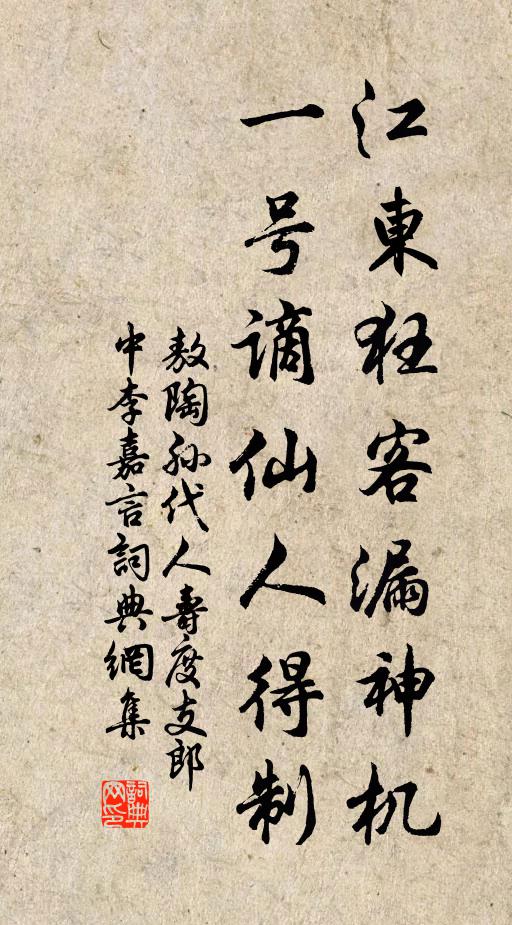 江東狂客漏神机
一号謫仙人得制
敖陶孙代人壽度支郎
中李嘉言詞典網集
詞典网印